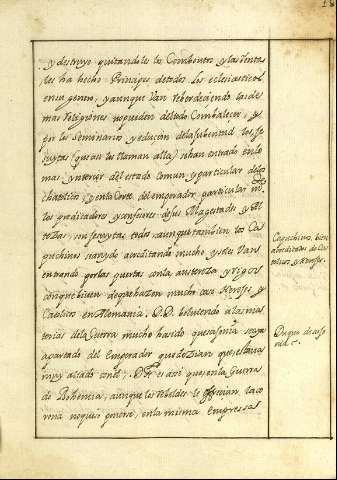 y destruyo quitandoles los Combentos y las Rentas
les ha hecho Principes de todos los eclesiasticos
en su genero, y aunque Van reberdeciendo las de
mas Religiones no pueden del todo Combalecer, y
en los Seminarios y educacion de la Jubentud los Je
suytas (que asi los llaman alla) se han entrado en lo
mas ynterior del estado Comun y particular de los
chatolicos, y en la Corte del emperador particular
los predicadores y confesores de sus Magestades y Al
tezas, son Jesuytas todos, aunque tambien los Ca
puchinos se an ydo acreditando mucho y se les Van
entrando por las puertas con la austeza y rigor
con que biuen de que hazen mucho caso Hereges y
Catolicos en Alemania. D.D. boluiendo a las ma
terias de la Guerra mucho ha sido que saxonia se aya
apartado del Emperador que dezian que estaua
muy aliado con el. D. es asi que en la Guerra
de Bohemia, aunque los Rebeldes le ofrecian la co
rona no quiso ponerse, en la misma empresa
Capuchinos bien
acreditados de Ca
tolicos y Hereges.
Duque de saxo
nia